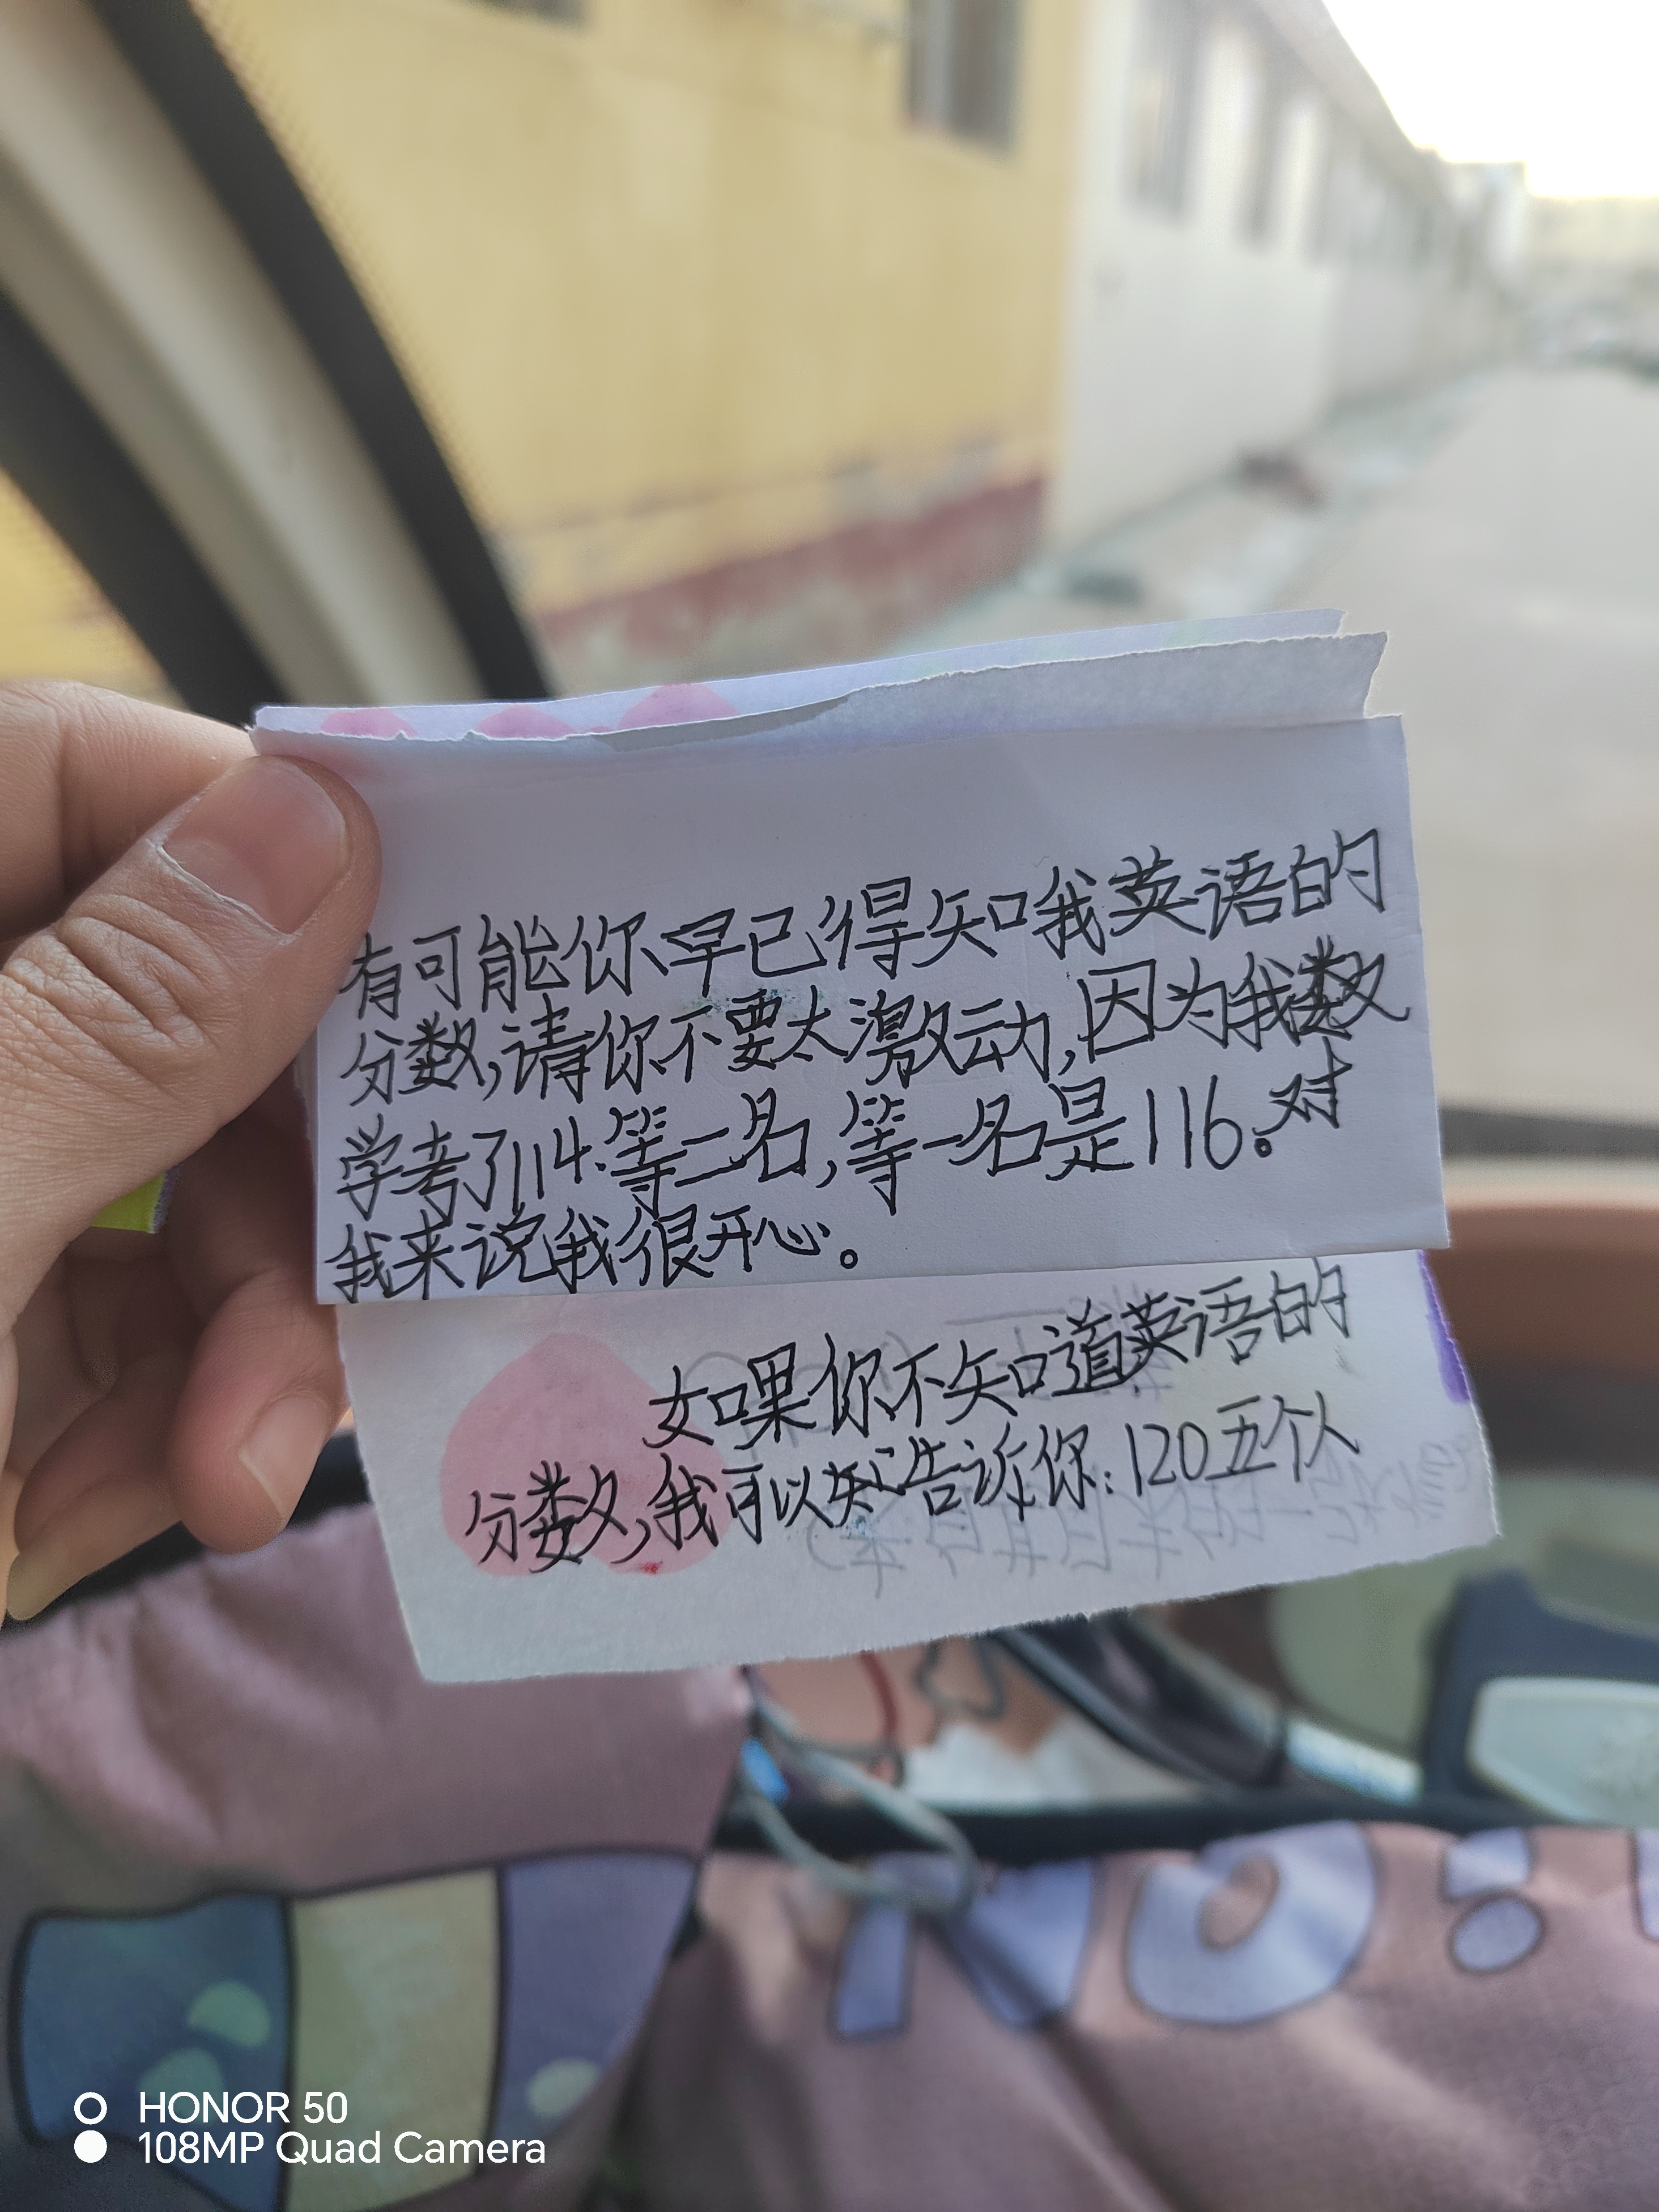 有可能你早已得知我英语的
分数,请你不要太激动,因为我数
学考了114.等二名,等一名是116。对
我来说我很开心。
如果你不知道英语的
分数,我可以告诉你:120五个人
NO!
HONOR 50
108MP Quad Camera